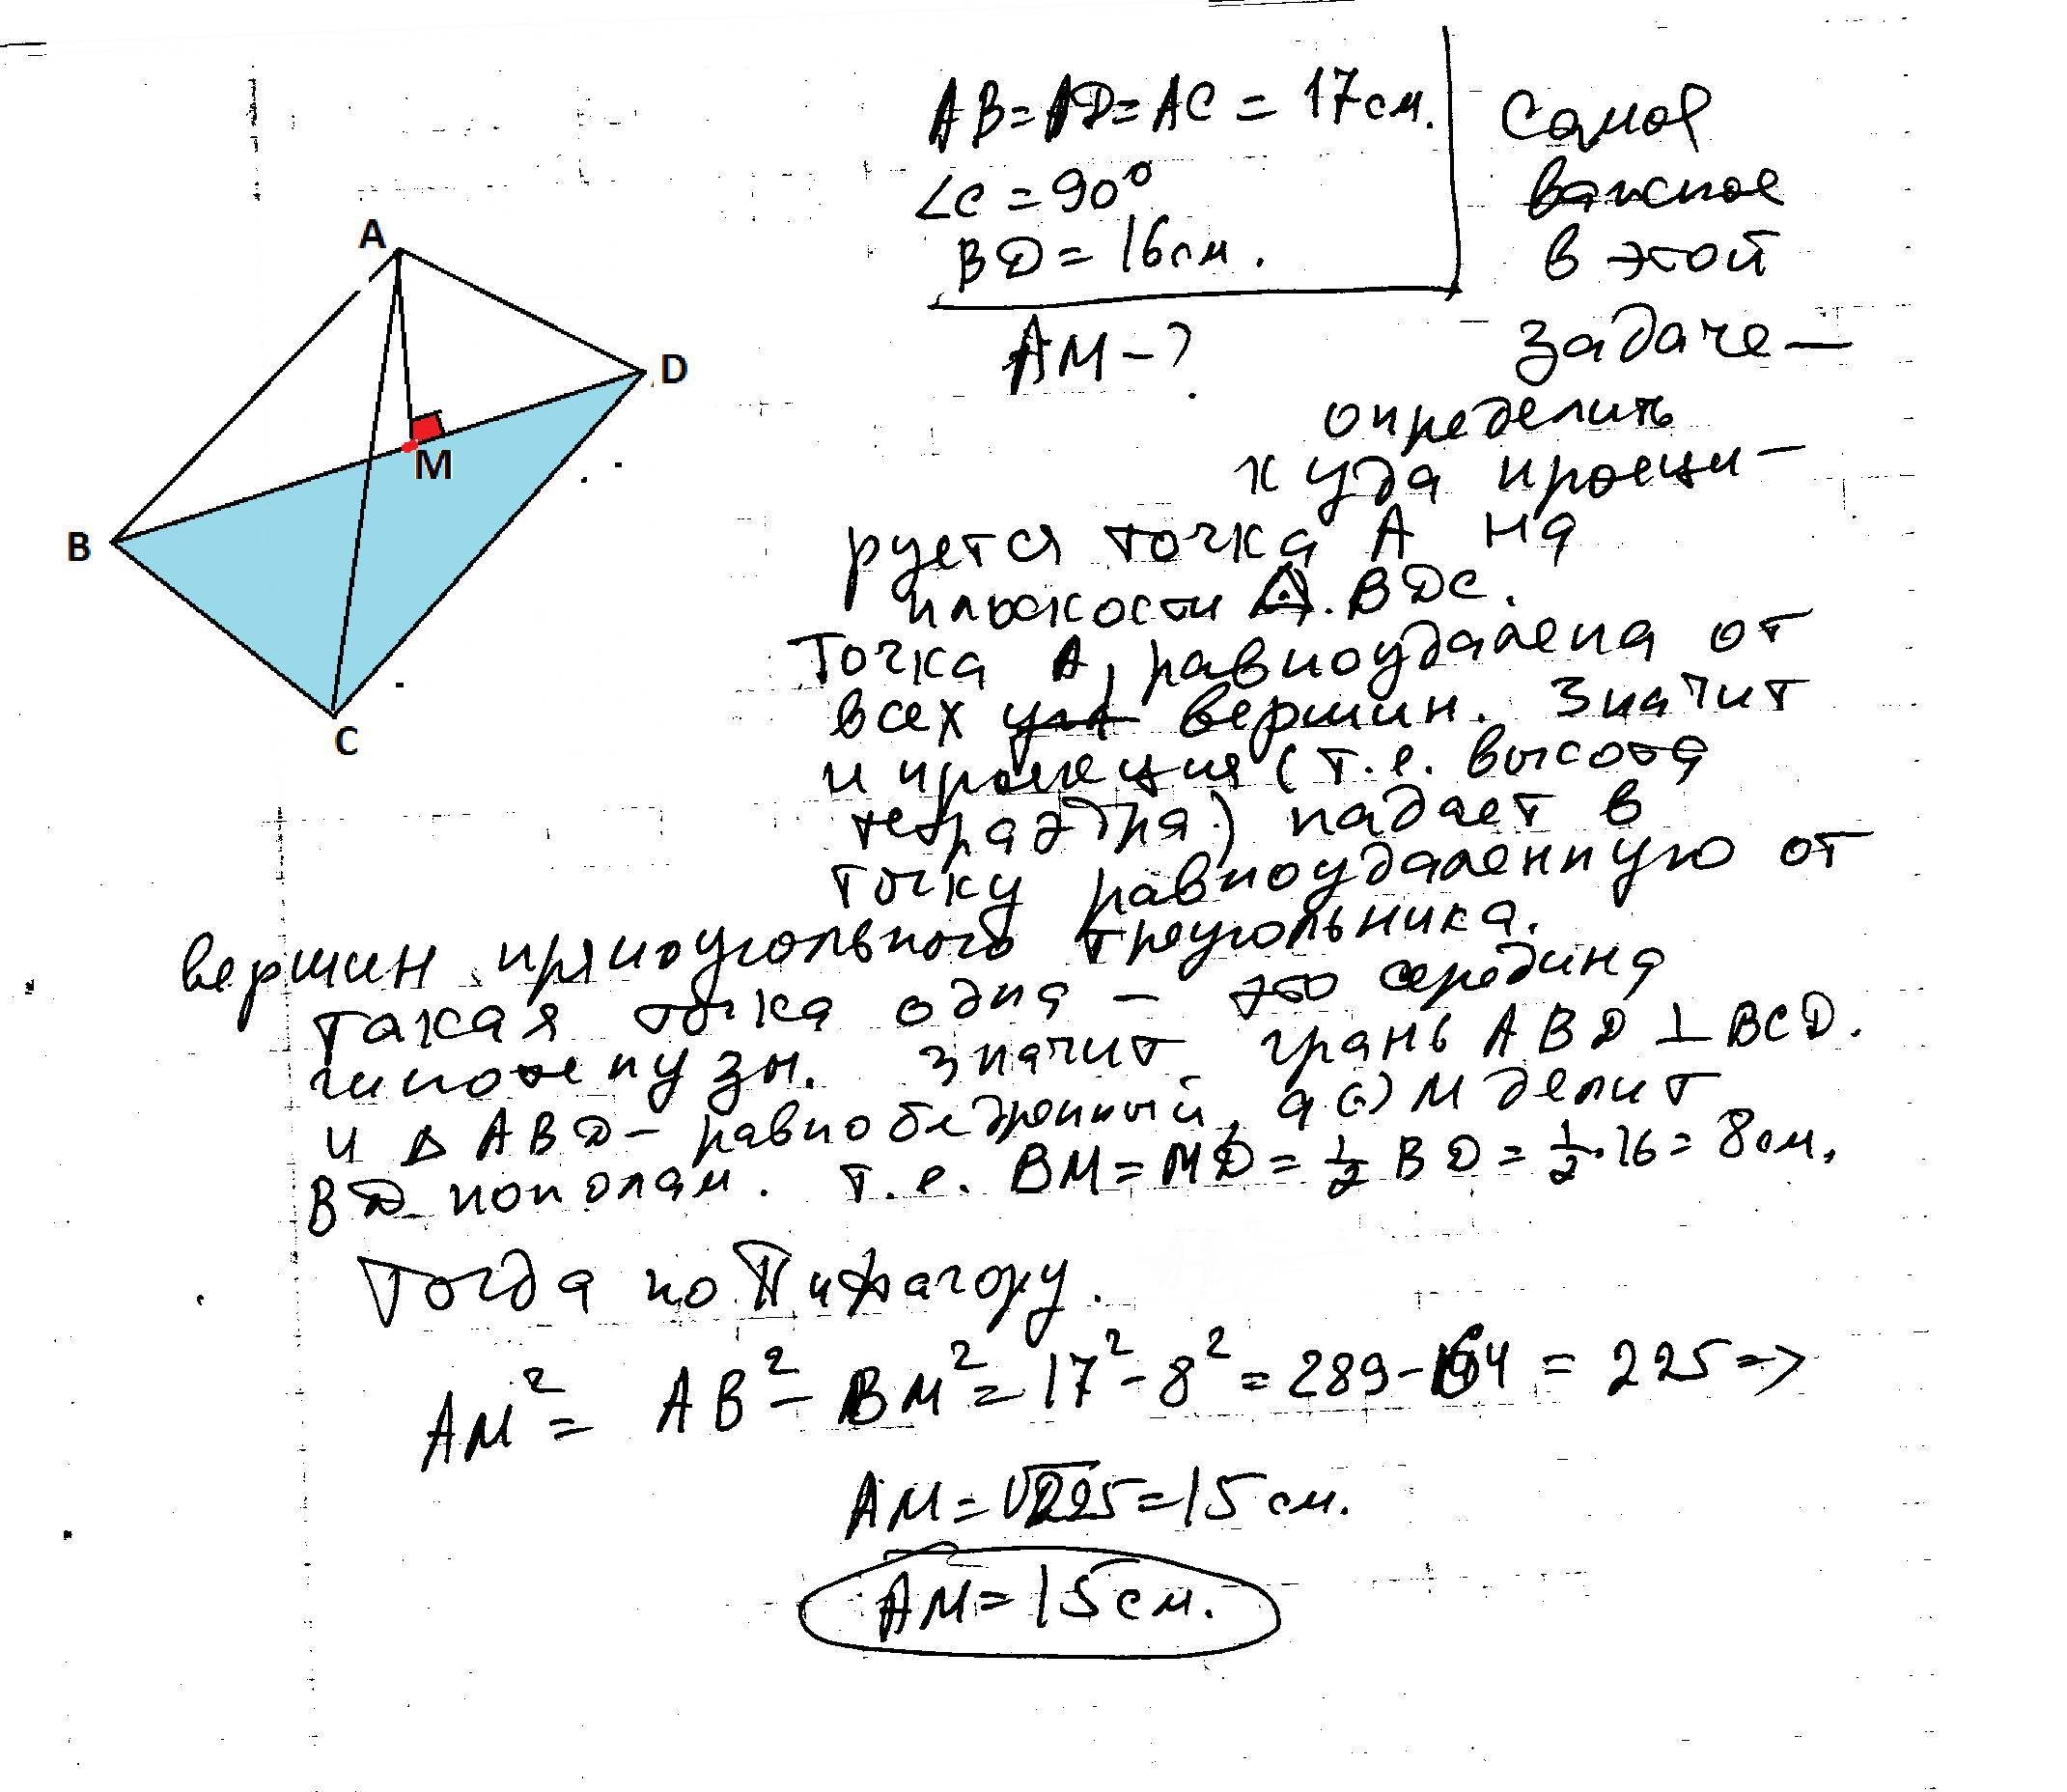 AB=AD=AC=17см.
∠C=90°
BD=16см.
AM-?
Самое
важное
в этой
задаче—
определить
куда проеци-
руется точка А на
плоскости △.BDC.
Точка А, равноудалена от
всех вершин. Значит
и проекция (т.е. высота
тетраэдра) падает в
точку равноудаленную от
вершин прямоугольного треугольника.
Такая точка одна – это середина
гипотенузы. Значит грань ABD⊥BCD.
и △ABD–равнобедренный, а (·) M делит
BD пополам. т.е. BM=MD=1/2 BD=1/2·16=8см.
Тогда по Пифагору.
AM²= AB²-BM²=17²-8²=289-64=225=>
AM=√225=15см.
AM=15см.
A
D
M
B
C